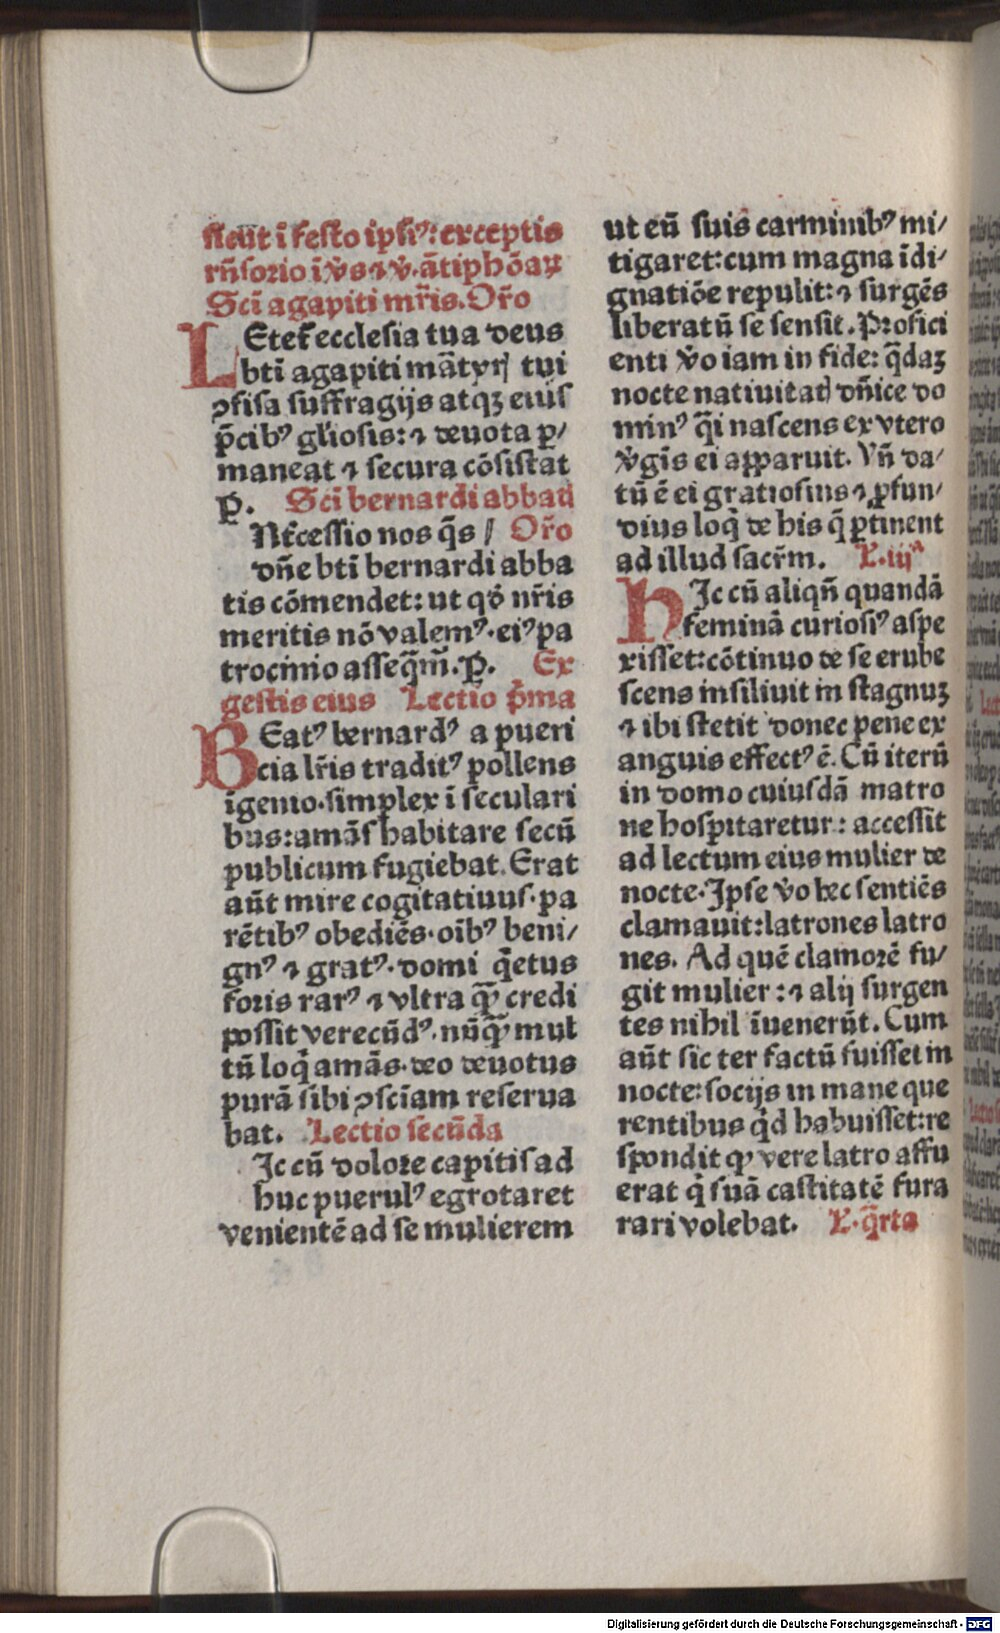 sicut ĩ festo ipsiꝰ: exceptis
rñsorio ĩ v̓s ⁊ v̓. ãtiphõaꝝ
Sci agapiti mr̃is. Or̃o
LEtet̃ ecclesia tua deus
bt̃i agapiti mãtyrꝭ tui
ꝯfisa suffragijs atqꝫ eius
p̃cibꝰ gl̓iosis: ⁊ deuota ꝑ/
maneat ⁊ secura cõsistat
P̱. Sc̃i bernardi abbatꝭ
Nt̃cessio nos q̃s / Or̃o
dñe bt̃i bernardi abba
tis cõmendet: ut qd̓ nr̃is
meritis nõ valemꝰ. eiꝰ pa
trocinio asseq̃m̃. P̱. Ex
gestis eius Lectio p̃ma
BEatꝰ bernardꝰ a pueri
cia lr̃is traditꝰ pollens
ĩgenio. simplex ĩ seculari
bus: amãs habitare secũ
publicum fugiebat. Erat
aũt mire cogitatiuus. pa
rẽtibꝰ obediẽs. oĩbꝰ beni/
gnꝰ ⁊ gratꝰ. domi q̃etus
foris rarꝰ ⁊ vltra qͣꝫ credi
possit verecũdꝰ. nũqͣꝫ mul
tũ loq̃ amãs. deo deuotus
purã sibi ꝯsciam reserua
bat. Lectio secũda
Ic cũ dolore capitis ad
huc puerulꝰ egrotaret
venientẽ ad se mulierem
ut eũ suis carminibꝰ mi/
tigaret: cum magna ĩdi/
gnatiõe repulit: ⁊ surgẽs
liberatũ se sensit. Profici
enti v̓o iam in fide: q̃daꝫ
nocte natiuitatꝭ dñice do
minꝰ q̃i nascens ex vtero
v̓gĩs ei apparuit. Vñ da/
tũ ẽ ei gratiosius ⁊ ꝓfun/
dius loq̃ de his q̃ ꝑtinent
ad illud sacr̃m. L. iijᵃ
HIc cũ aliqñ quandã
feminã curiosiꝰ aspe
xisset: cõtinuo de se erube
scens insiliuit in stagnuꝫ
⁊ ibi stetit donec pene ex
anguis effectꝰ ẽ. Cũ iterũ
in domo cuiusdã matro
ne hospitaretur: accessit
ad lectum eius mulier de
nocte. Ipse v̓o hec sentiẽs
clamauit: latrones latro
nes. Ad quẽ clamorẽ fu/
git mulier: ⁊ alij surgen
tes nihil ĩuenerũt. Cum
aũt sic ter factũ fuisset in
nocte: socijs in mane que
rentibus q̓d habuisset: re
spondit ꝙ vere latro affu
erat q̓ suã castitatẽ fura
rari volebat. L. q̃rta
Digitalisierung gefördert durch die Deutsche Forschungsgemeinschaft - DFG